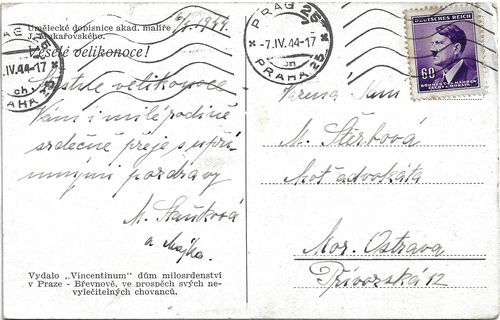 Umělecké dopisnice akad. malíře
J. Makařovského.
6/4 1944.
Veselé velikonoce!
velikonoce
Vám i milé rodině
srdečně přeje s upří-
mnými pozdravy
M. Staňková
a Majka.
Vydalo „Vincentinum" dům milosrdenství
v Praze - Břevnově, ve prospěch svých ne-
vyléčitelných chovanců.
PRAG 25
-7.IV.44-17
ch
PRAHA 25
PRAG 25
-7.IV.44-17
PRAHA 25
DEUTSCHES REICH
60
BÖHMEN UND MÄHREN
ČECHY A MORAVA
M. Štěrbová
advokáta
Mor. Ostrava
Přívozská 12